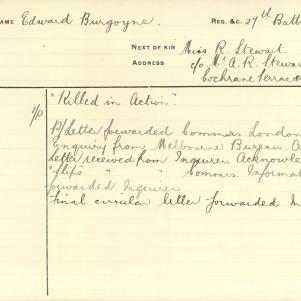 NAME Edward Burgoyne. REG. &C. 27th Batt
NEXT OF KIN Miss R. Stewart.
ADDRESS c/o Mr A. R. Stewar
Cochrane Terrace
"Killed in Action".
B/Letter forwarded Commrs London
Enquiry from Melbourne Bureau.
Letter received from Inquirer Acknowle
"Slips " " Commrs. Informat
forwarded Inquirer
Final circular letter forwarded In